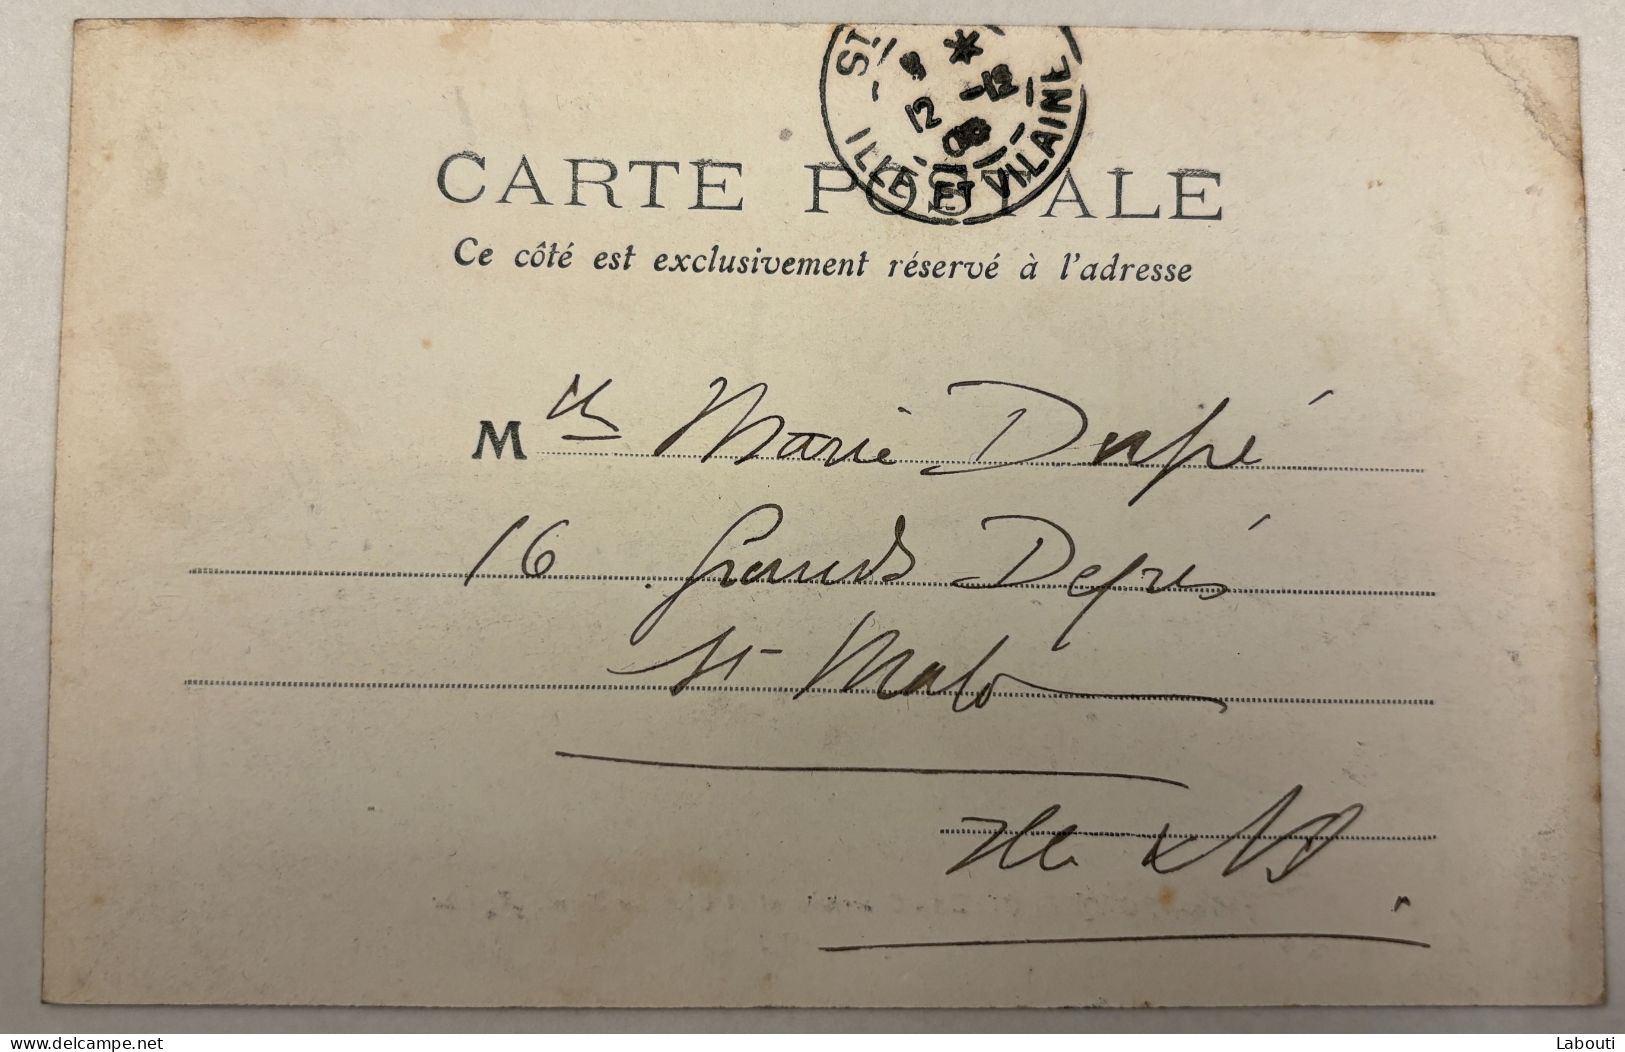 ST
8 *
12 -12
08
ILLE ET VILAINE
CARTE POSTALE
Ce côté est exclusivement réservé à l'adresse
Mlle Marie Dupé
16 Grands Degrés
St Malo
Ille & V
www.delcampe.net
Labouti